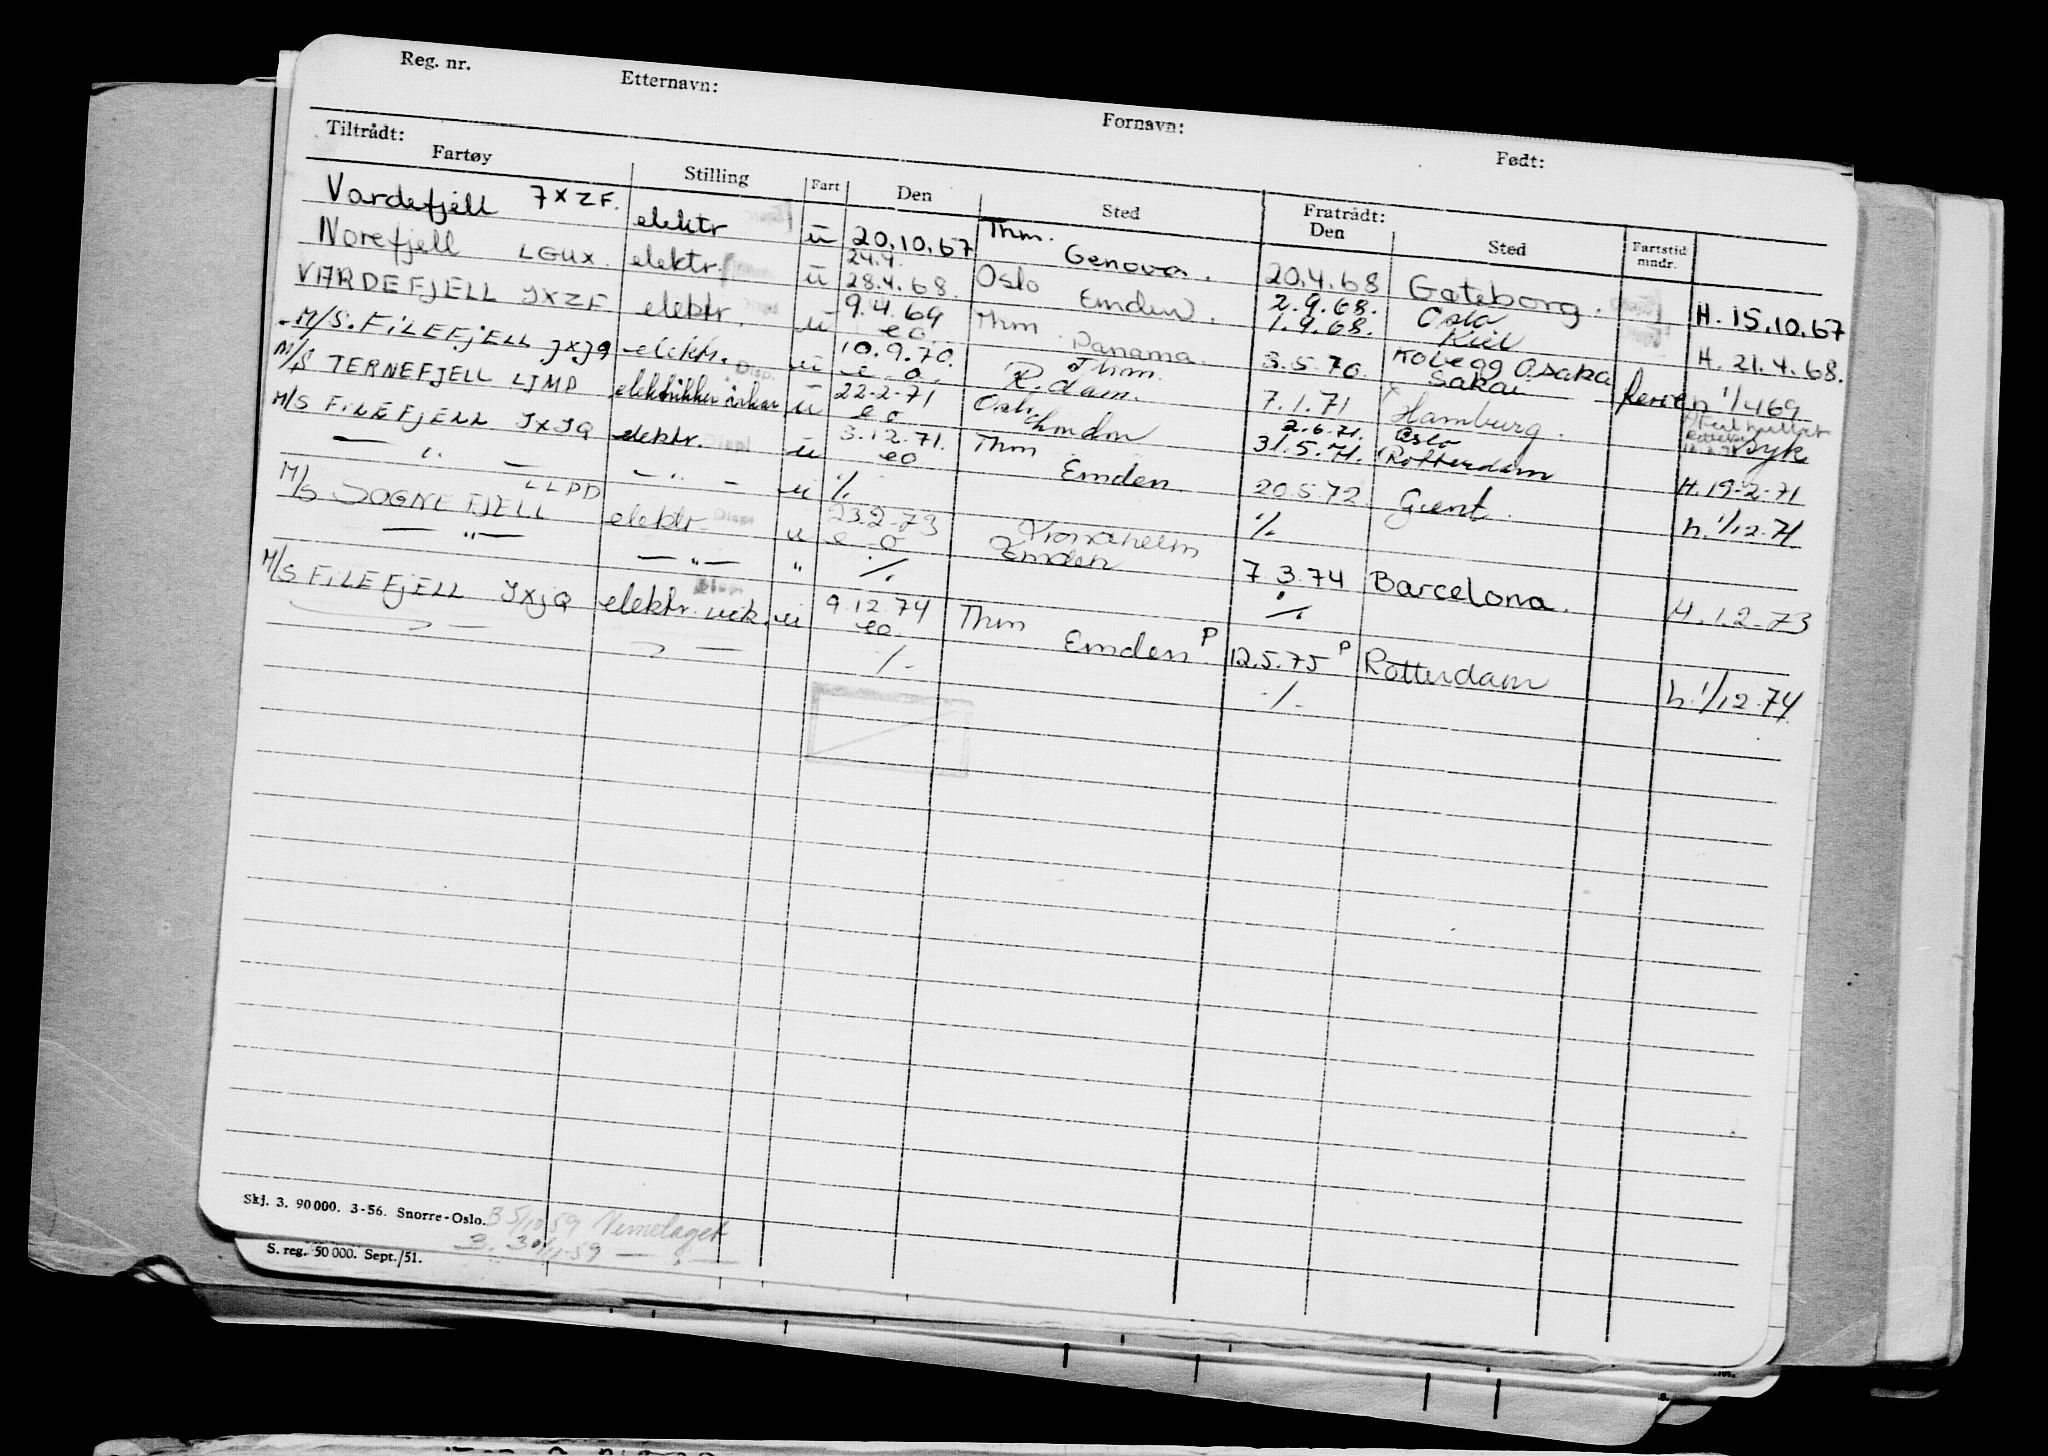 Reg. nr. Etternavn: Fornavn: Født:
Tiltrådt: Fratrådt:
Fartøy Stilling Fart Den Sted Den Sted Fartstid mndr.
Vardefjell JXZF. elektr u 20.10.67 Thm. Genova. 20.4.68 Gøteborg. H. 15.10.67
Norefjell LGUX. elektr. u 24.4. 28.4.68. Oslo Emden. 2.9.68. 1.9.68. Oslo Kiel H. 21.4.68.
VARDEFJELL JXZF elektr. u 9.4.69 eo Thm Panama. 3.5.70 Kobe og Osaka Sakai h 1/4 69
M/S. FILEFJELL JXJQ elektr. u 10.9.70. e.o. Thm. R.dam. 7.1.71 Hamburg. syk
M/S TERNEFJELL LJMD u 22-2-71 eo Oslo Emden 2.6.71. 31.5.71. Oslo Rotterdam H. 19-2-71
M/S FILEFJELL JXJQ elektr. u 3.12.71. eo Thm Emden 20.5.72. Gent. h. 1/12.71
— " — — " — u %
M/S SOGNEFJELL LLPD elektr u 23.2-73 e o Trondheim Emden 7.3.74 Barcelona. H. 1.2-73
— " — — " — " %. %
M/S FILEFJELL JXJQ elektr. u 9.12.74 eo. Thm Emden P 12.5.75 P Rotterdam h. 1/12-74
%. %.
Skj. 3. 90000. 3-56. Snorre-Oslo. B 5/10 59
S. reg. 50 000. Sept./51.